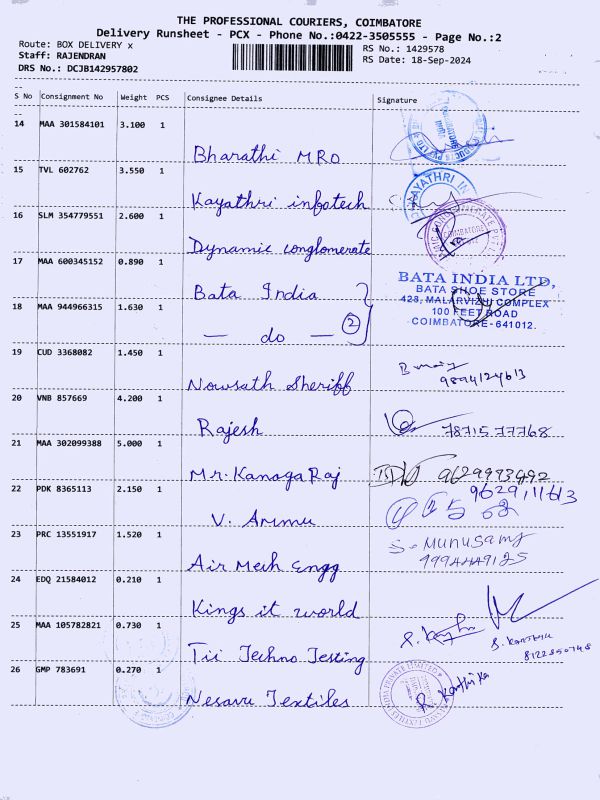 THE PROFESSIONAL COURIERS, COIMBATORE
Delivery Runsheet - PCX - Phone No.:0422-3505555 - Page No.:2
Route: BOX DELIVERY x
RS No.: 1429578
Staff: RAJENDRAN
RS Date: 18-Sep-2024
DRS No.: DCJB142957802
S No Consignment No Weight PCS Consignee Details Signature
14 MAA 301584101 3.100 1
Bharathi MRO
15 TVL 602762 3.550 1
Kayathri infotech
16 SLM 354779551 2.600 1
COIMBATORE
Dynamic conglomerate
17 MAA 600345152 0.890 1
Bata India
BATA INDIA LTD,
BATA SHOE STORE
428, MALARVIZHI COMPLEX
100 FEET ROAD
COIMBATORE-641012.
18 MAA 944966315 1.630 1
— do — 2
19 CUD 3368082 1.450 1
Nowsath Sheriff
9894124613
20 VNB 857669 4.200 1
Rajesh
78715 77768
21 MAA 302099388 5.000 1
Mr. Kanaga Raj
9629993492
22 PDK 8365113 2.150 1
9629111613
V. Ammu
23 PRC 13551917 1.520 1
S. MUNUSAMY
Air Mech Engg
24 EDQ 21584012 0.210 1
Kings it world
25 MAA 105782821 0.730 1
Tii Techno Testing
26 GMP 783691 0.270 1
Nesavu Textiles
R. Karthika